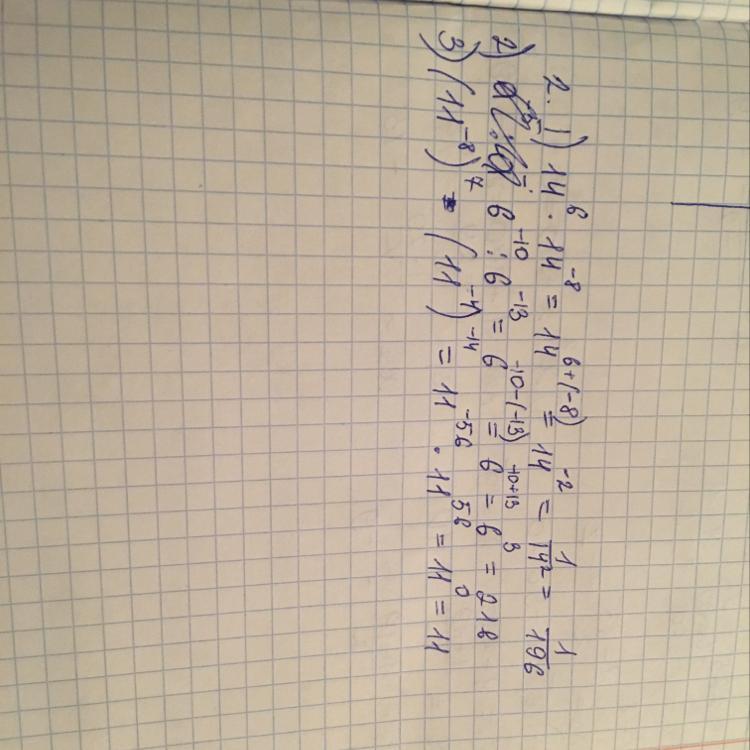 2. 1) 14⁶ · 14⁻⁸ = 14⁶⁺⁽⁻⁸⁾ = 14⁻² = 1/14² = 1/196
2) 6⁻¹⁰ : 6⁻¹³ = 6⁻¹⁰⁻⁽⁻¹³⁾ = 6⁻¹⁰⁺¹³ = 6³ = 218
3) (11⁻⁸)⁷ · (11⁻⁴)⁻¹⁴ = 11⁻⁵⁶ · 11⁵⁶ = 11⁰ = 11